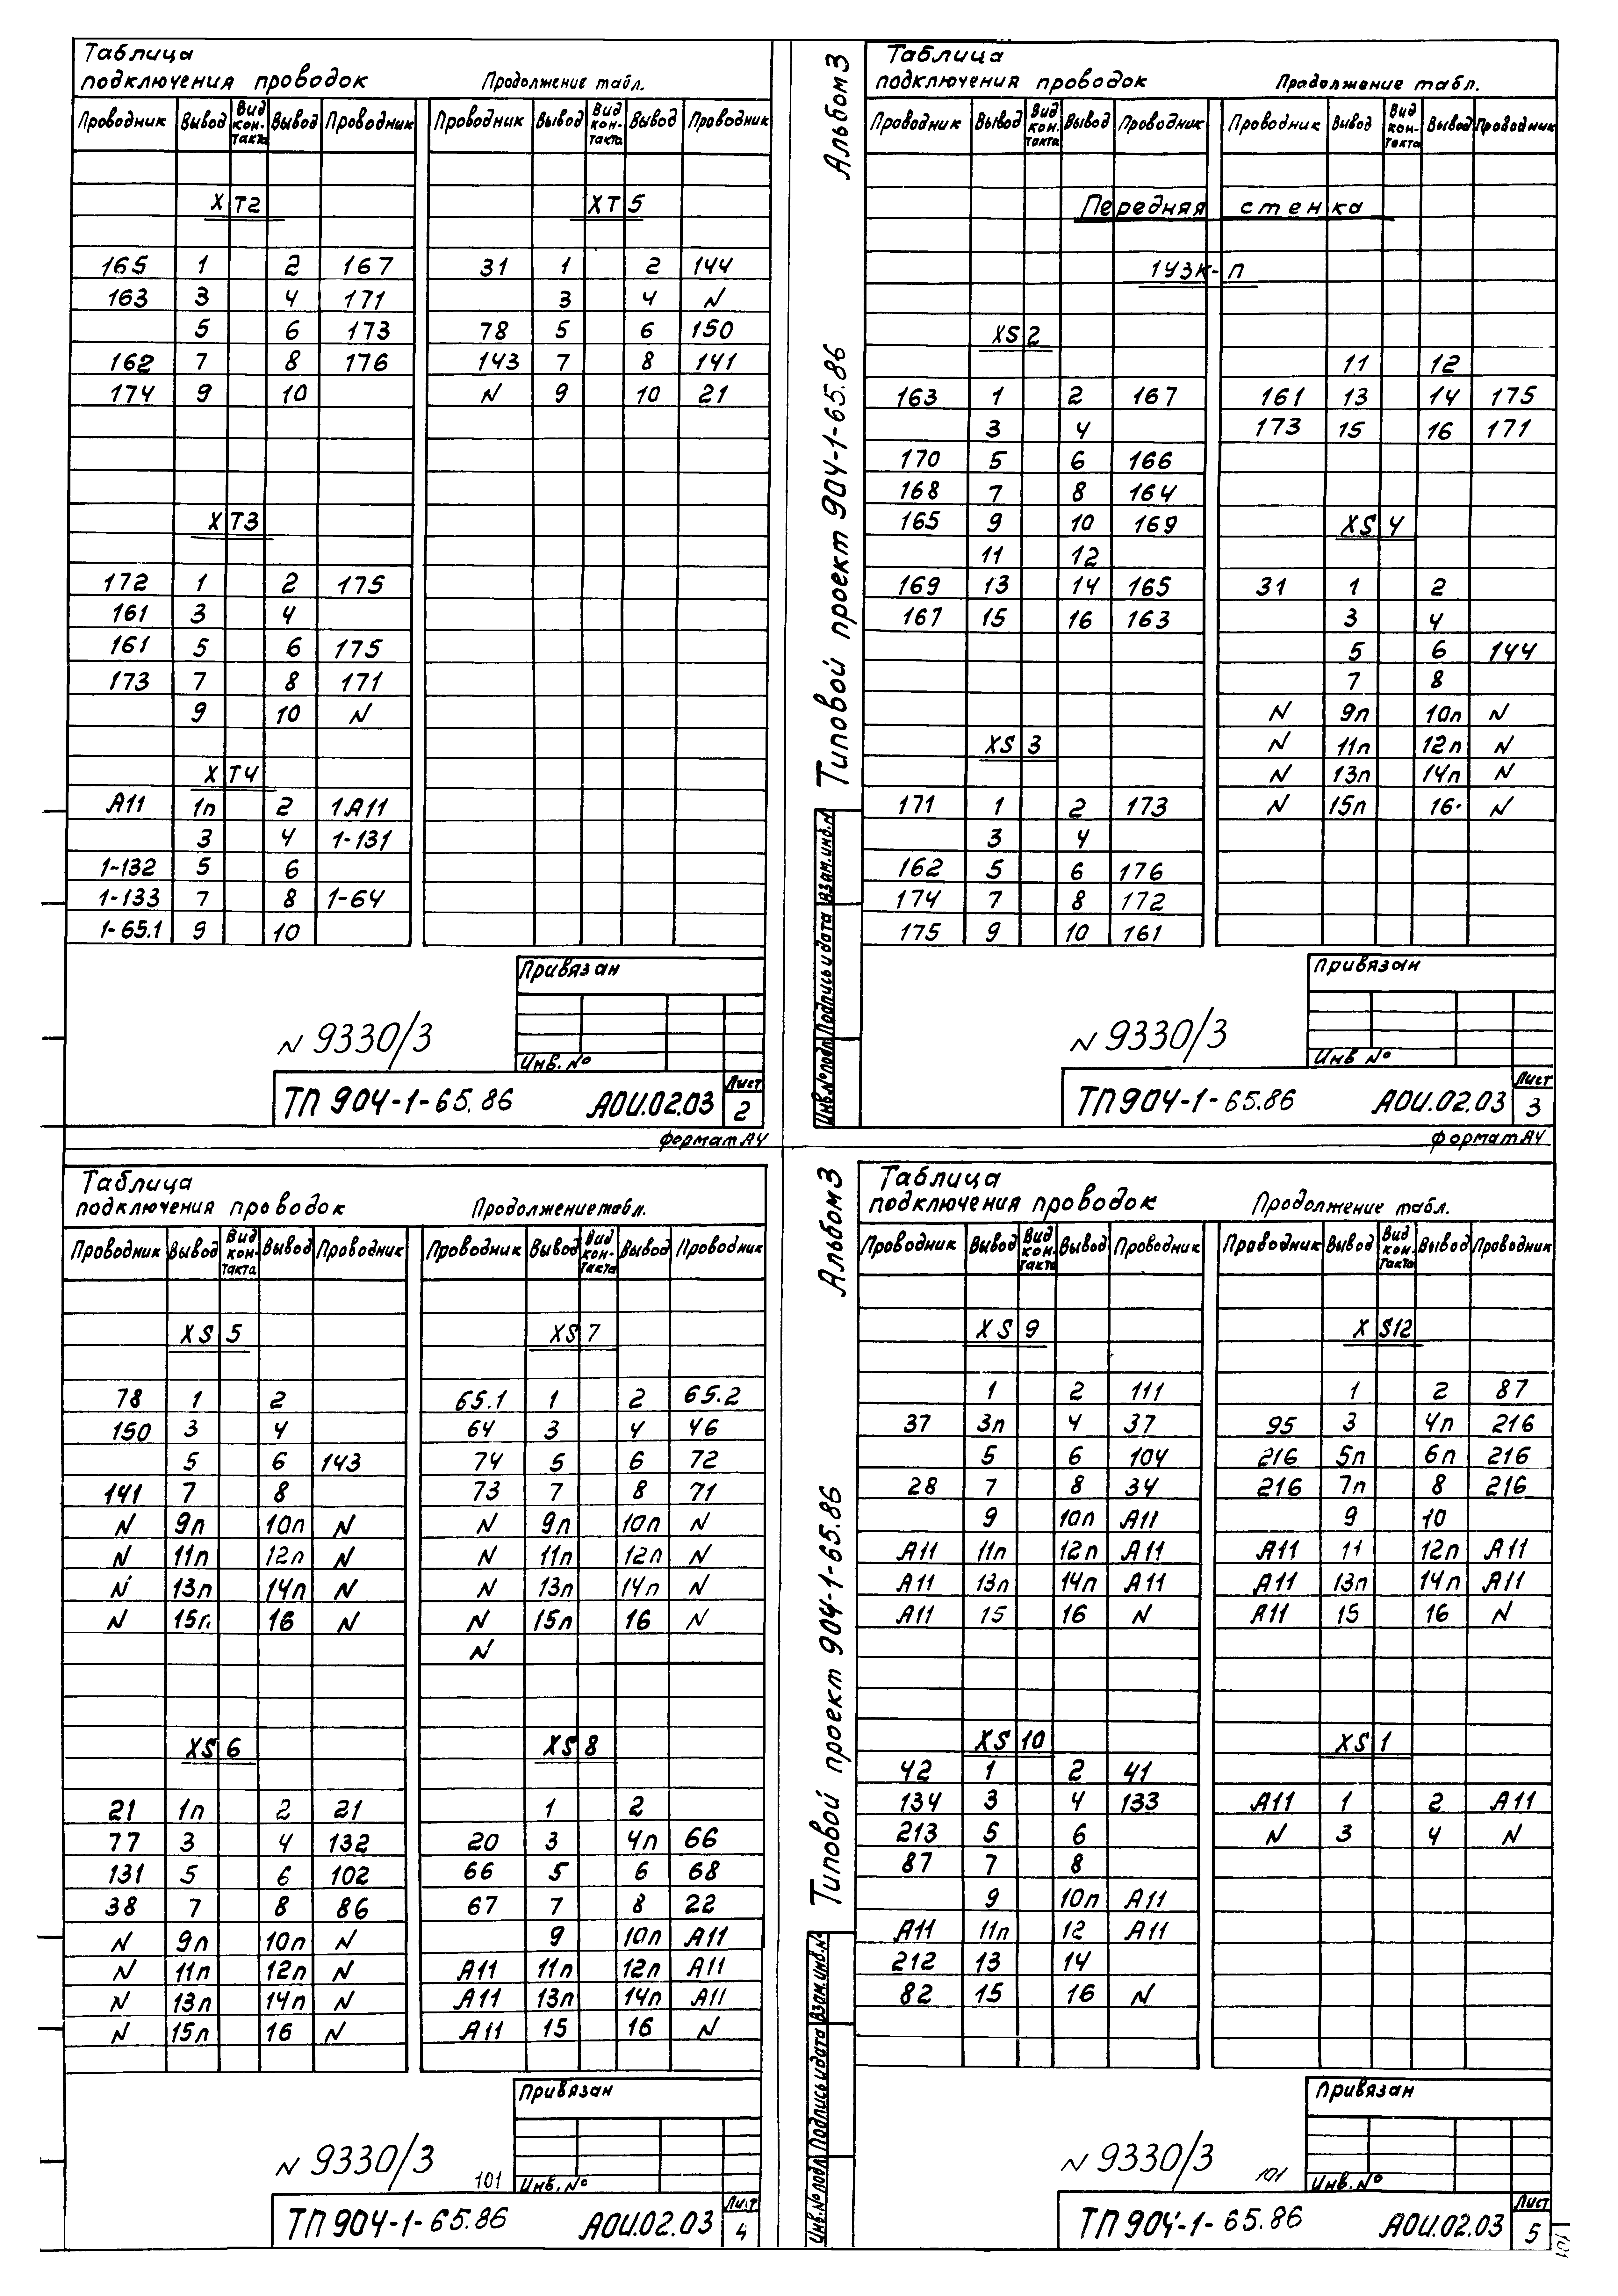 Таблица
подключения проводок Продолжение табл.
Проводник Вывод Вид кон-такта Вывод Проводник Проводник Вывод Вид кон-такта Вывод Проводник
XT2 XT5
165 1 2 167 31 1 2 144
163 3 4 171 3 4 N
5 6 173 78 5 6 150
162 7 8 176 143 7 8 141
174 9 10 N 9 10 21
XT3
172 1 2 175
161 3 4
161 5 6 175
173 7 8 171
9 10 N
XT4
A11 1п 2 1A11
3 4 1-131
1-132 5 6
1-133 7 8 1-64
1-65.1 9 10
Привязан
N 9330/3
Инв. №
ТП 904-1-65.86 АОИ.02.03 Лист 2
формат А4
Альбом 3
Типовой проект 904-1-65.86
Инв.№ подл. Подпись и дата Взам.инв.№
Таблица
подключения проводок Продолжение табл.
Проводник Вывод Вид кон-такта Вывод Проводник Проводник Вывод Вид кон-такта Вывод Проводник
Передняя стенка
1УЗК-П
XS2
11 12
163 1 2 167 161 13 14 175
3 4 173 15 16 171
170 5 6 166
168 7 8 164
165 9 10 169 XS4
11 12
169 13 14 165 31 1 2
167 15 16 163 3 4
5 6 144
7 8
N 9п 10п N
XS3 N 11п 12п N
N 13п 14п N
171 1 2 173 N 15п 16. N
3 4
162 5 6 176
174 7 8 172
175 9 10 161
Привязан
N 9330/3
Инв №
ТП 904-1-65.86 АОИ.02.03 Лист 3
формат А4
Таблица
подключения проводок Продолжение табл.
Проводник Вывод Вид кон-такта Вывод Проводник Проводник Вывод Вид кон-такта Вывод Проводник
XS5 XS7
78 1 2 65.1 1 2 65.2
150 3 4 64 3 4 46
5 6 143 74 5 6 72
141 7 8 73 7 8 71
N 9п 10п N N 9п 10п N
N 11п 12п N N 11п 12п N
N 13п 14п N N 13п 14п N
N 15п 16 N N 15п 16 N
N
XS6 XS8
21 1п 2 21 1 2
77 3 4 132 20 3 4п 66
131 5 6 102 66 5 6 68
38 7 8 86 67 7 8 22
N 9п 10п N 9 10п A11
N 11п 12п N A11 11п 12п A11
N 13п 14п N A11 13п 14п A11
N 15п 16 N A11 15 16 N
Привязан
N 9330/3
101
Инв. №
ТП 904-1-65.86 АОИ.02.03 Лист 4
Альбом 3
Типовой проект 904-1-65.86
Инв.№ подл. Подпись и дата Взам.инв.№
Таблица
подключения проводок Продолжение табл.
Проводник Вывод Вид кон-такта Вывод Проводник Проводник Вывод Вид кон-такта Вывод Проводник
XS9 XS12
1 2 111 1 2 87
37 3п 4 37 95 3 4п 216
5 6 104 216 5п 6п 216
28 7 8 34 216 7п 8 216
9 10п A11 9 10
A11 11п 12п A11 A11 11 12п A11
A11 13п 14п A11 A11 13п 14п A11
A11 15 16 N A11 15 16 N
XS10 XS1
42 1 2 41
134 3 4 133 A11 1 2 A11
213 5 6 N 3 4 N
87 7 8
9 10п A11
A11 11п 12 A11
212 13 14
82 15 16 N
Привязан
N 9330/3
101
Инв.№
ТП 904-1-65.86 АОИ.02.03 Лист 5
101